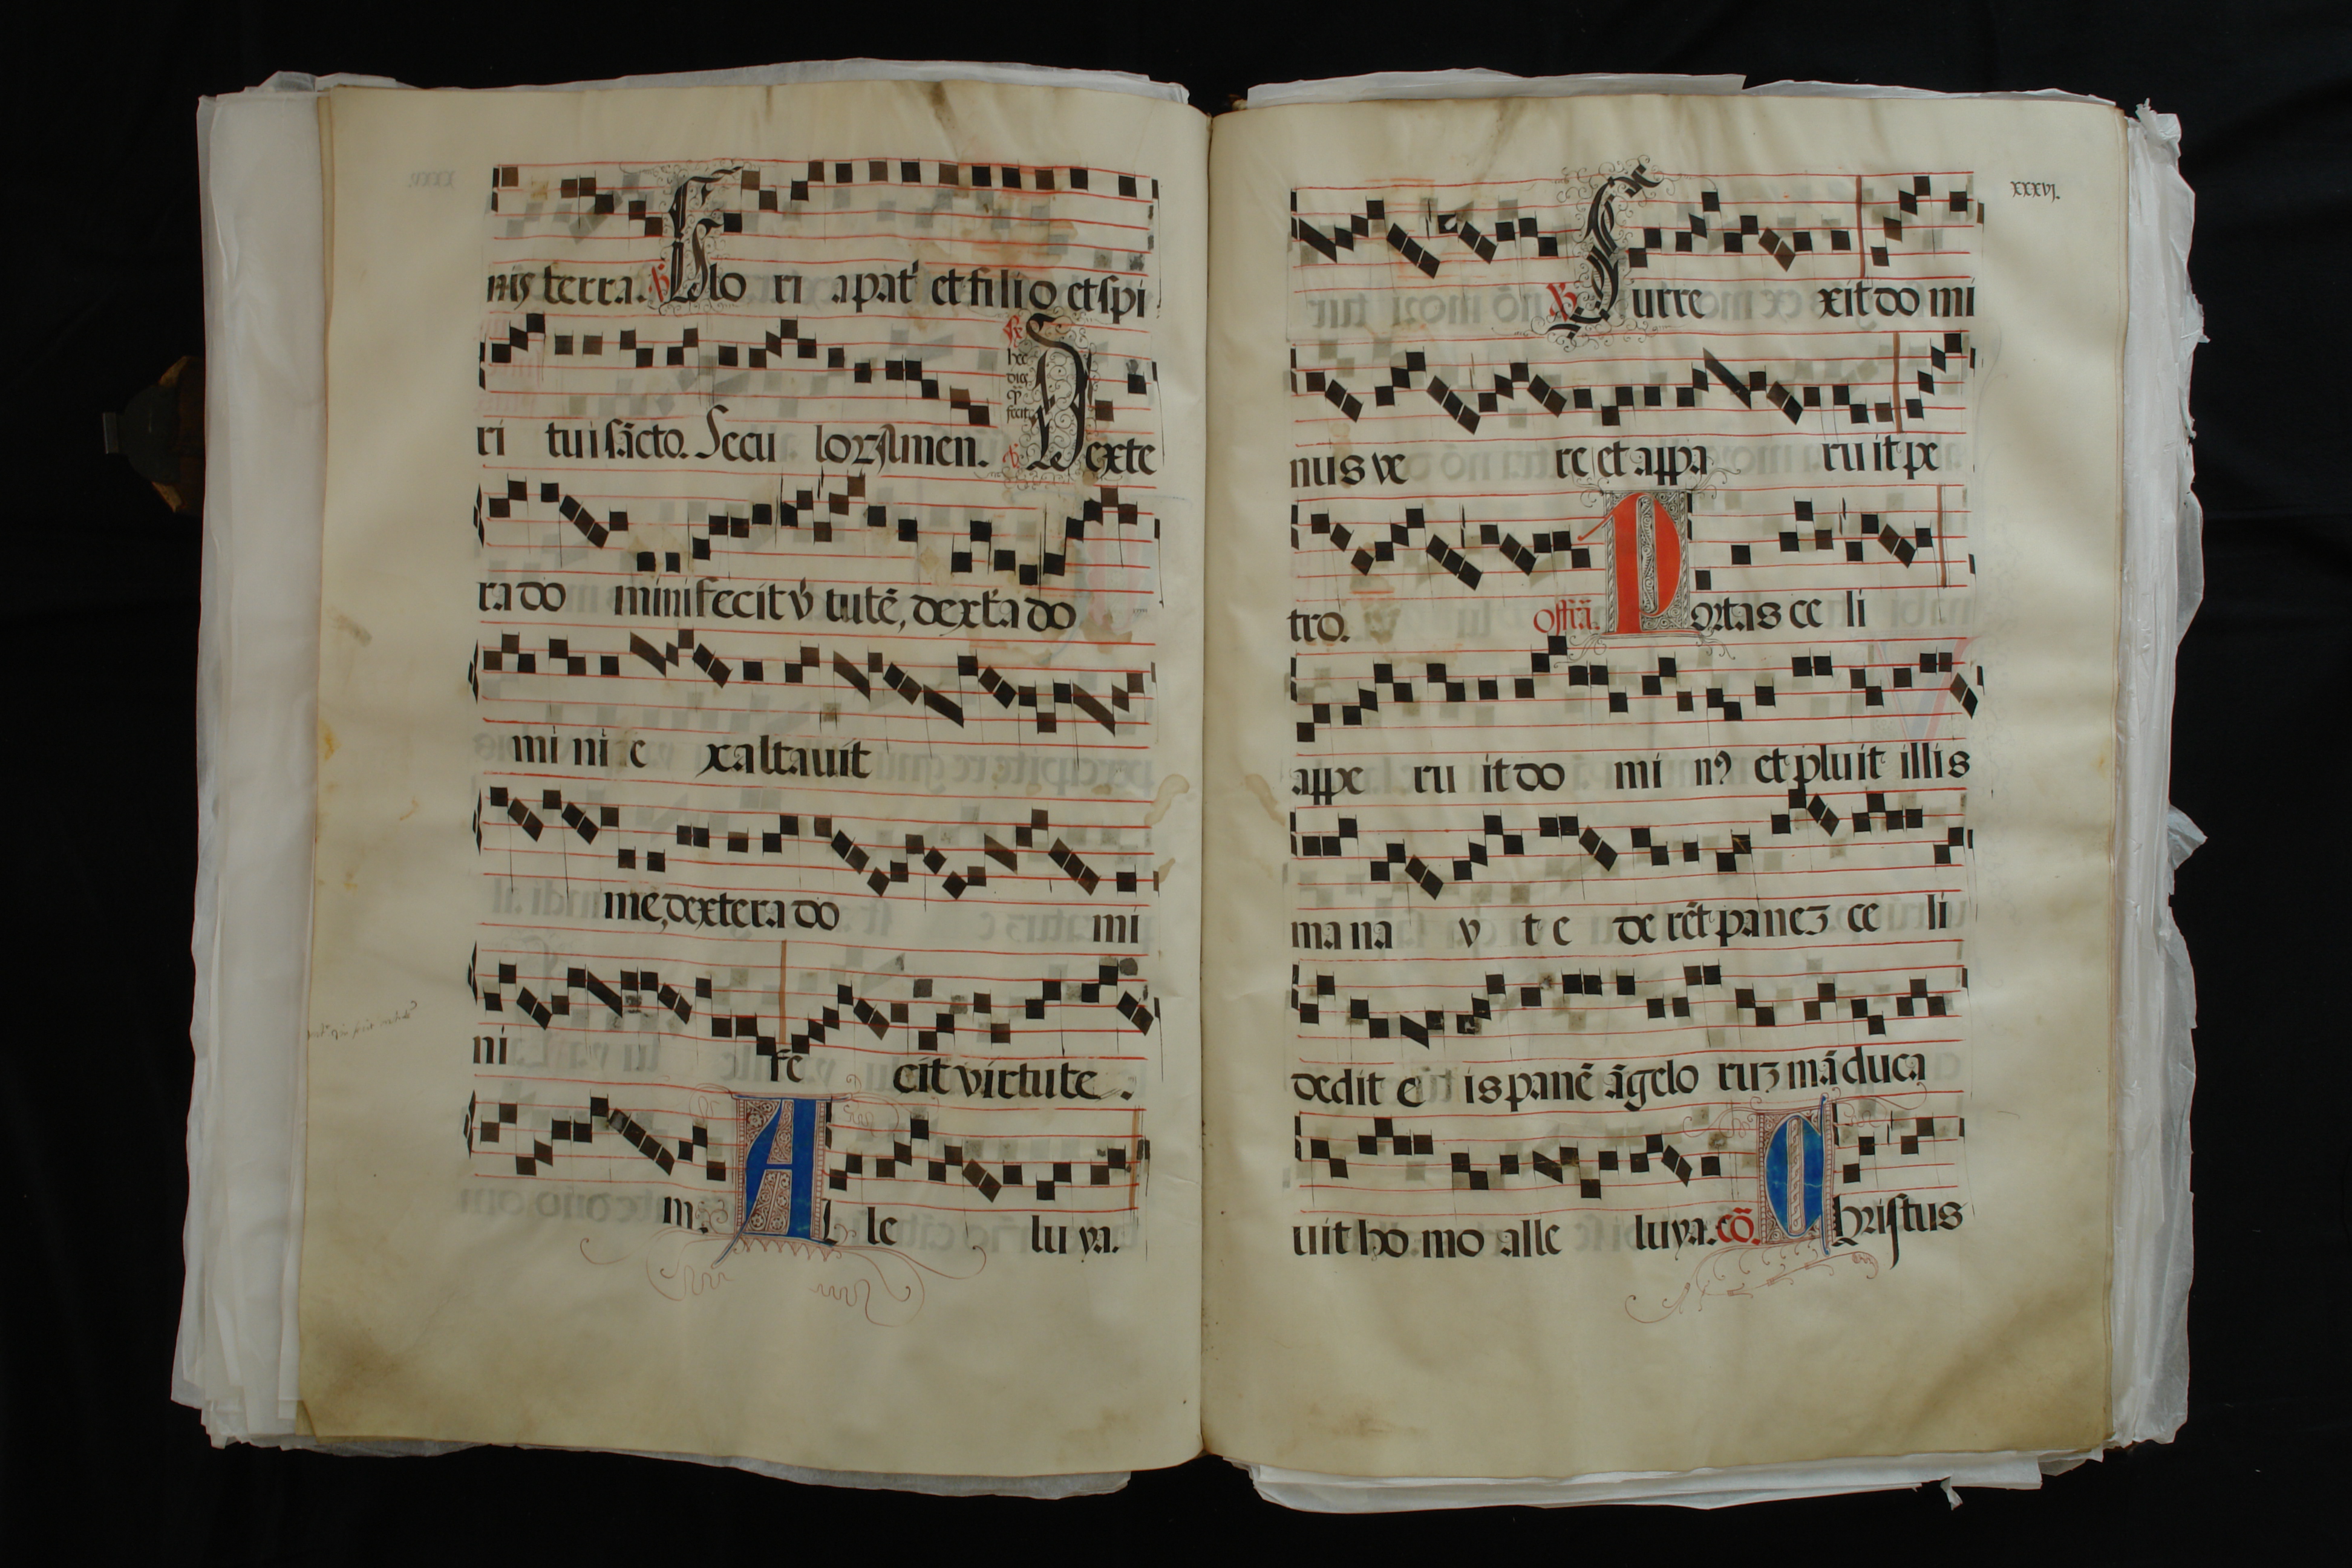 nis terra. ℣ Glo ri a pat̉ et filio et spi
ri tui sācto. Secu loꝝ Amen.
hec
dies
fecit
℣ Dexte
ra do mini fecit v̉ tutē, dext̉a do
mi ni e xaltauit
me, dextera do mi
ni fe cit virtute .
m. Al le lu ya.
xxxvj.
℣ Surre xit do mi
nus ve re et appa ru it pe
tro. Offiā. Portas ce li
appe ru it do mi nꝰ et pluit illis
ma na v t e de rēt panez ce li
dedit e is panē āgelo ruz māduca
uit ho mo alle luya. cō. Christus